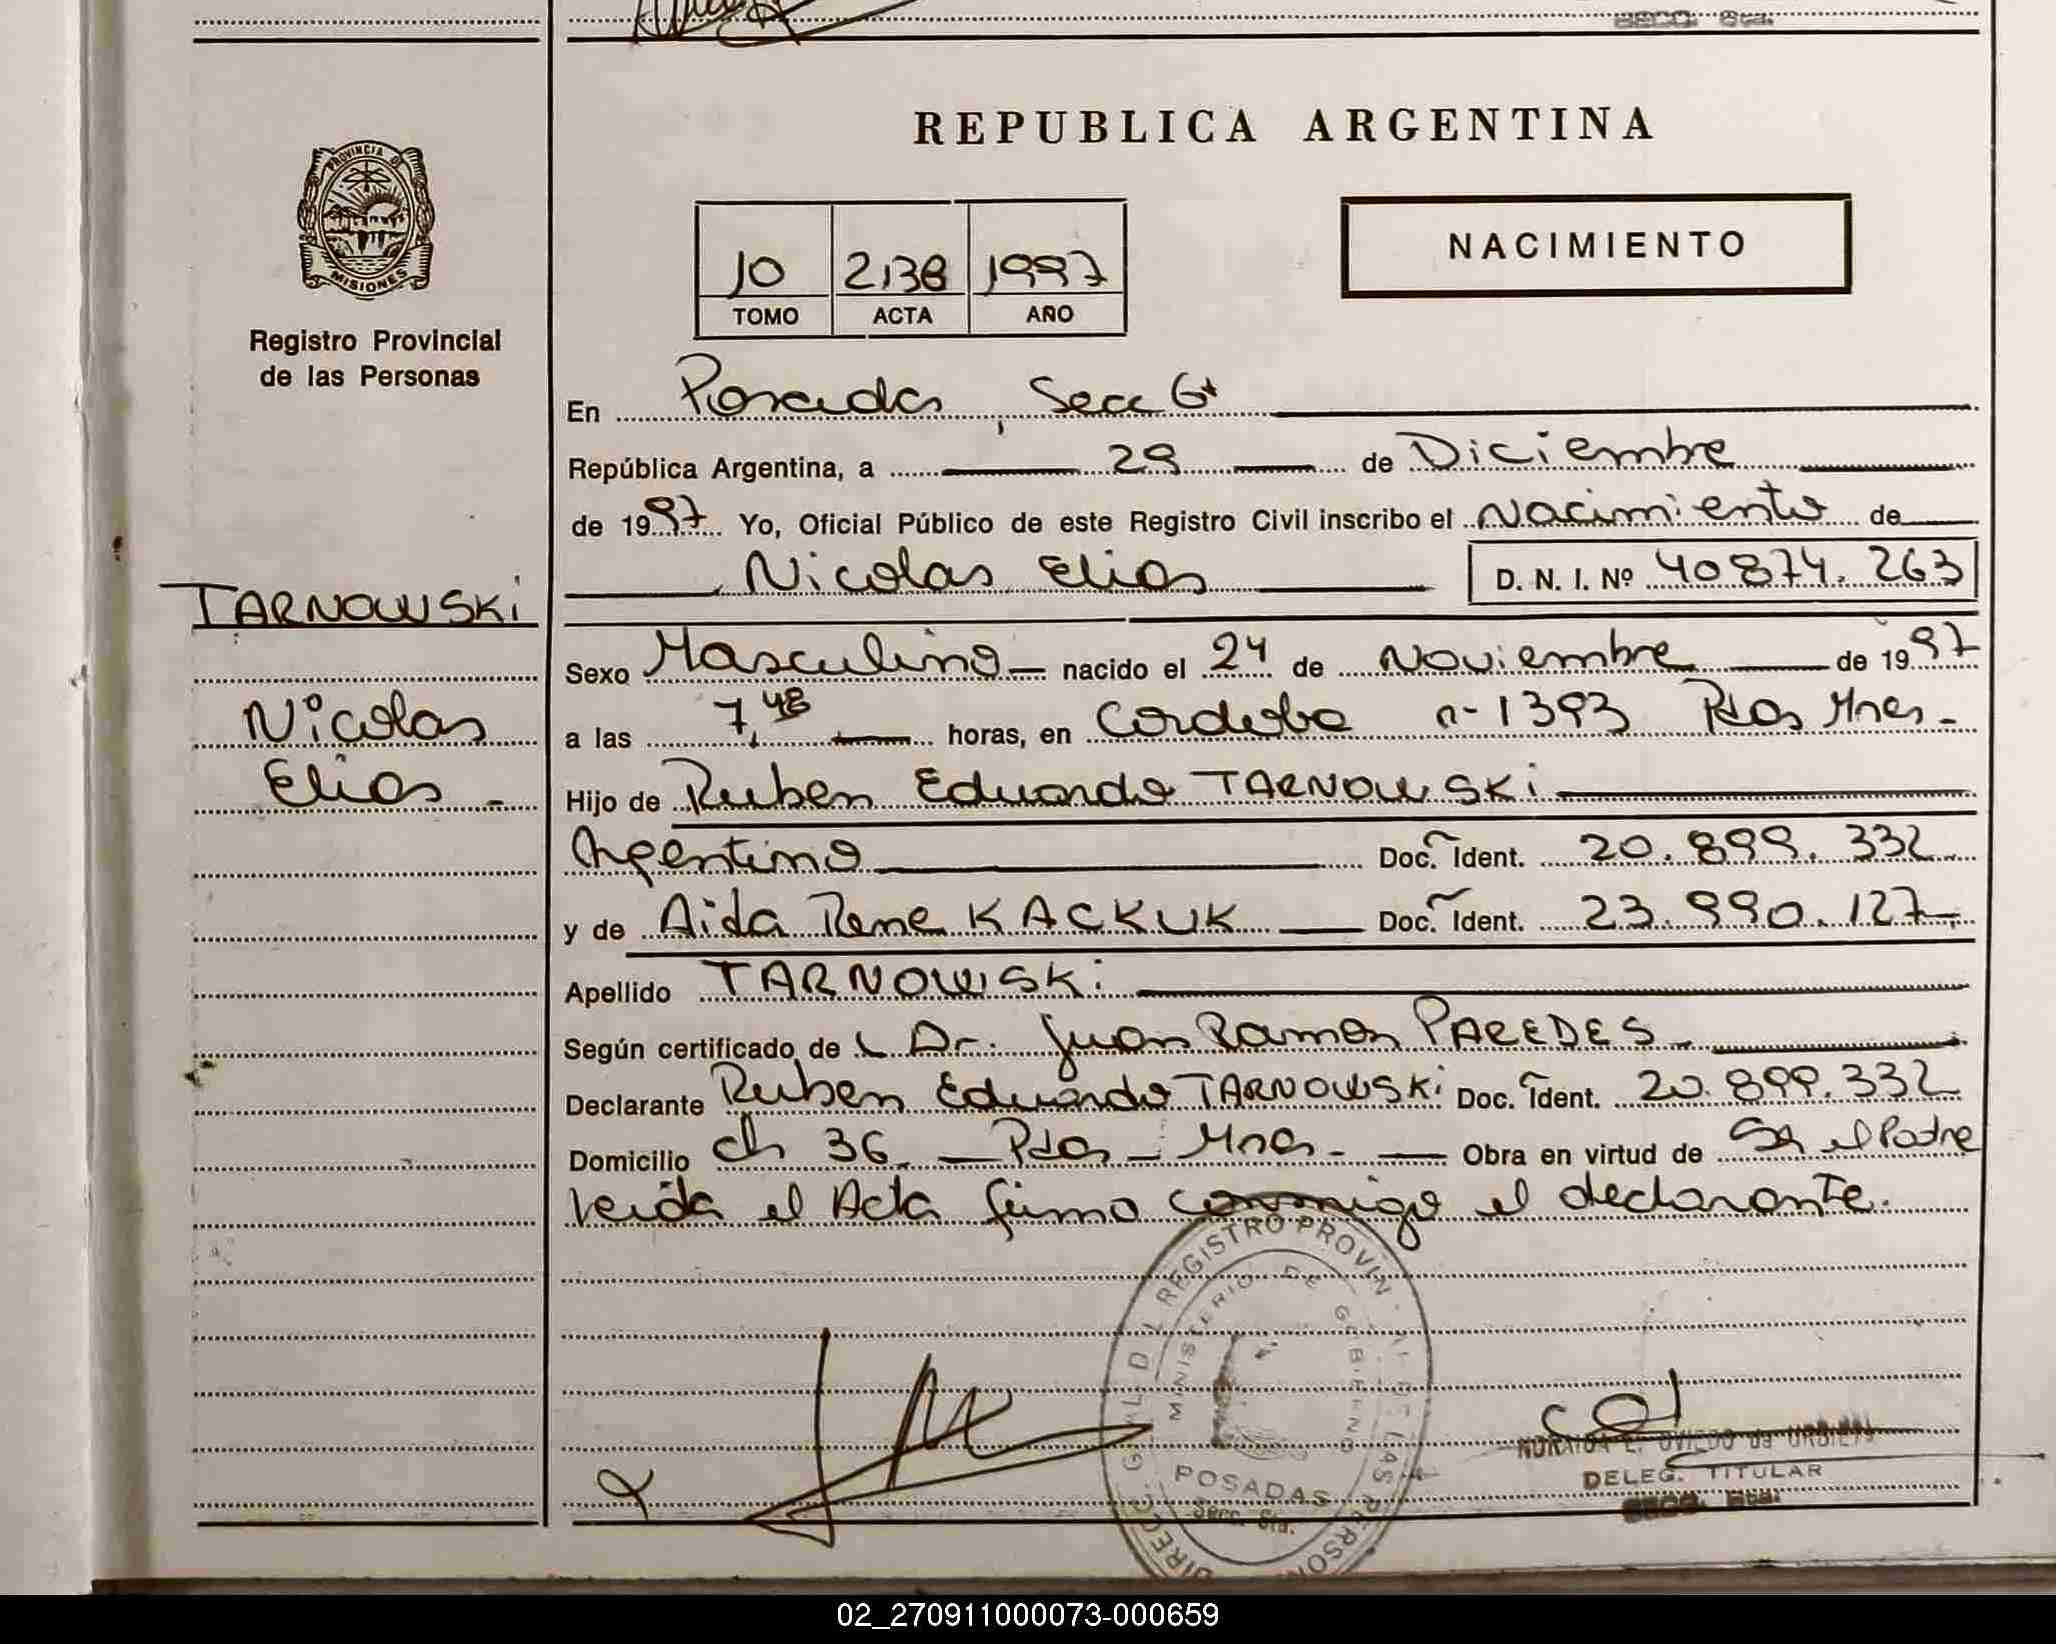 SECC. 6ta.
REPUBLICA ARGENTINA
PROVINCIA DE
MISIONES
Registro Provincial
de las Personas
NACIMIENTO
10 2138 1997
TOMO ACTA AÑO
En Posadas, Secc 6ª
República Argentina, a 29 de Diciembre
de 1997 Yo, Oficial Público de este Registro Civil inscribo el Nacimiento de
Nicolas Elias D. N. I. Nº 40874.263
TARNOWSKi
Nicolas
Elias -
Sexo Masculino nacido el 24 de Noviembre de 1997
a las 7,48 horas, en Cordoba n- 1393 Pdas Mnes-
Hijo de Ruben Eduardo TARNOWSKi
Argentino Doc. Ident. 20.899.332
y de Aida Rene KACKUK Doc. Ident. 23.990.127
Apellido TARNOWSKi
Según certificado de L Dr. Juan Ramon PAREDES
Declarante Ruben Eduardo TARNOWSKi Doc. Ident. 20.899.332
Domicilio ch 36 - Pdas - Mnes - Obra en virtud de Sr el Padre
Leida el Acta firmo conmigo el declarante.
DIRECC. GRAL. D L REGISTRO PROVIN LAS PERSON
MINISTERIO DE GOBIERNO
POSADAS
Secc. 6ta.
OVIEDO de
DELEG. TITULAR
SECC. 6ta.
02_270911000073-000659